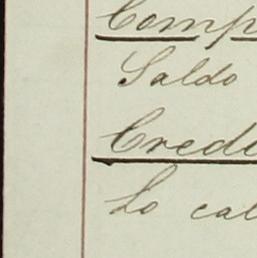 Comp
Saldo
Credi
Lo cal